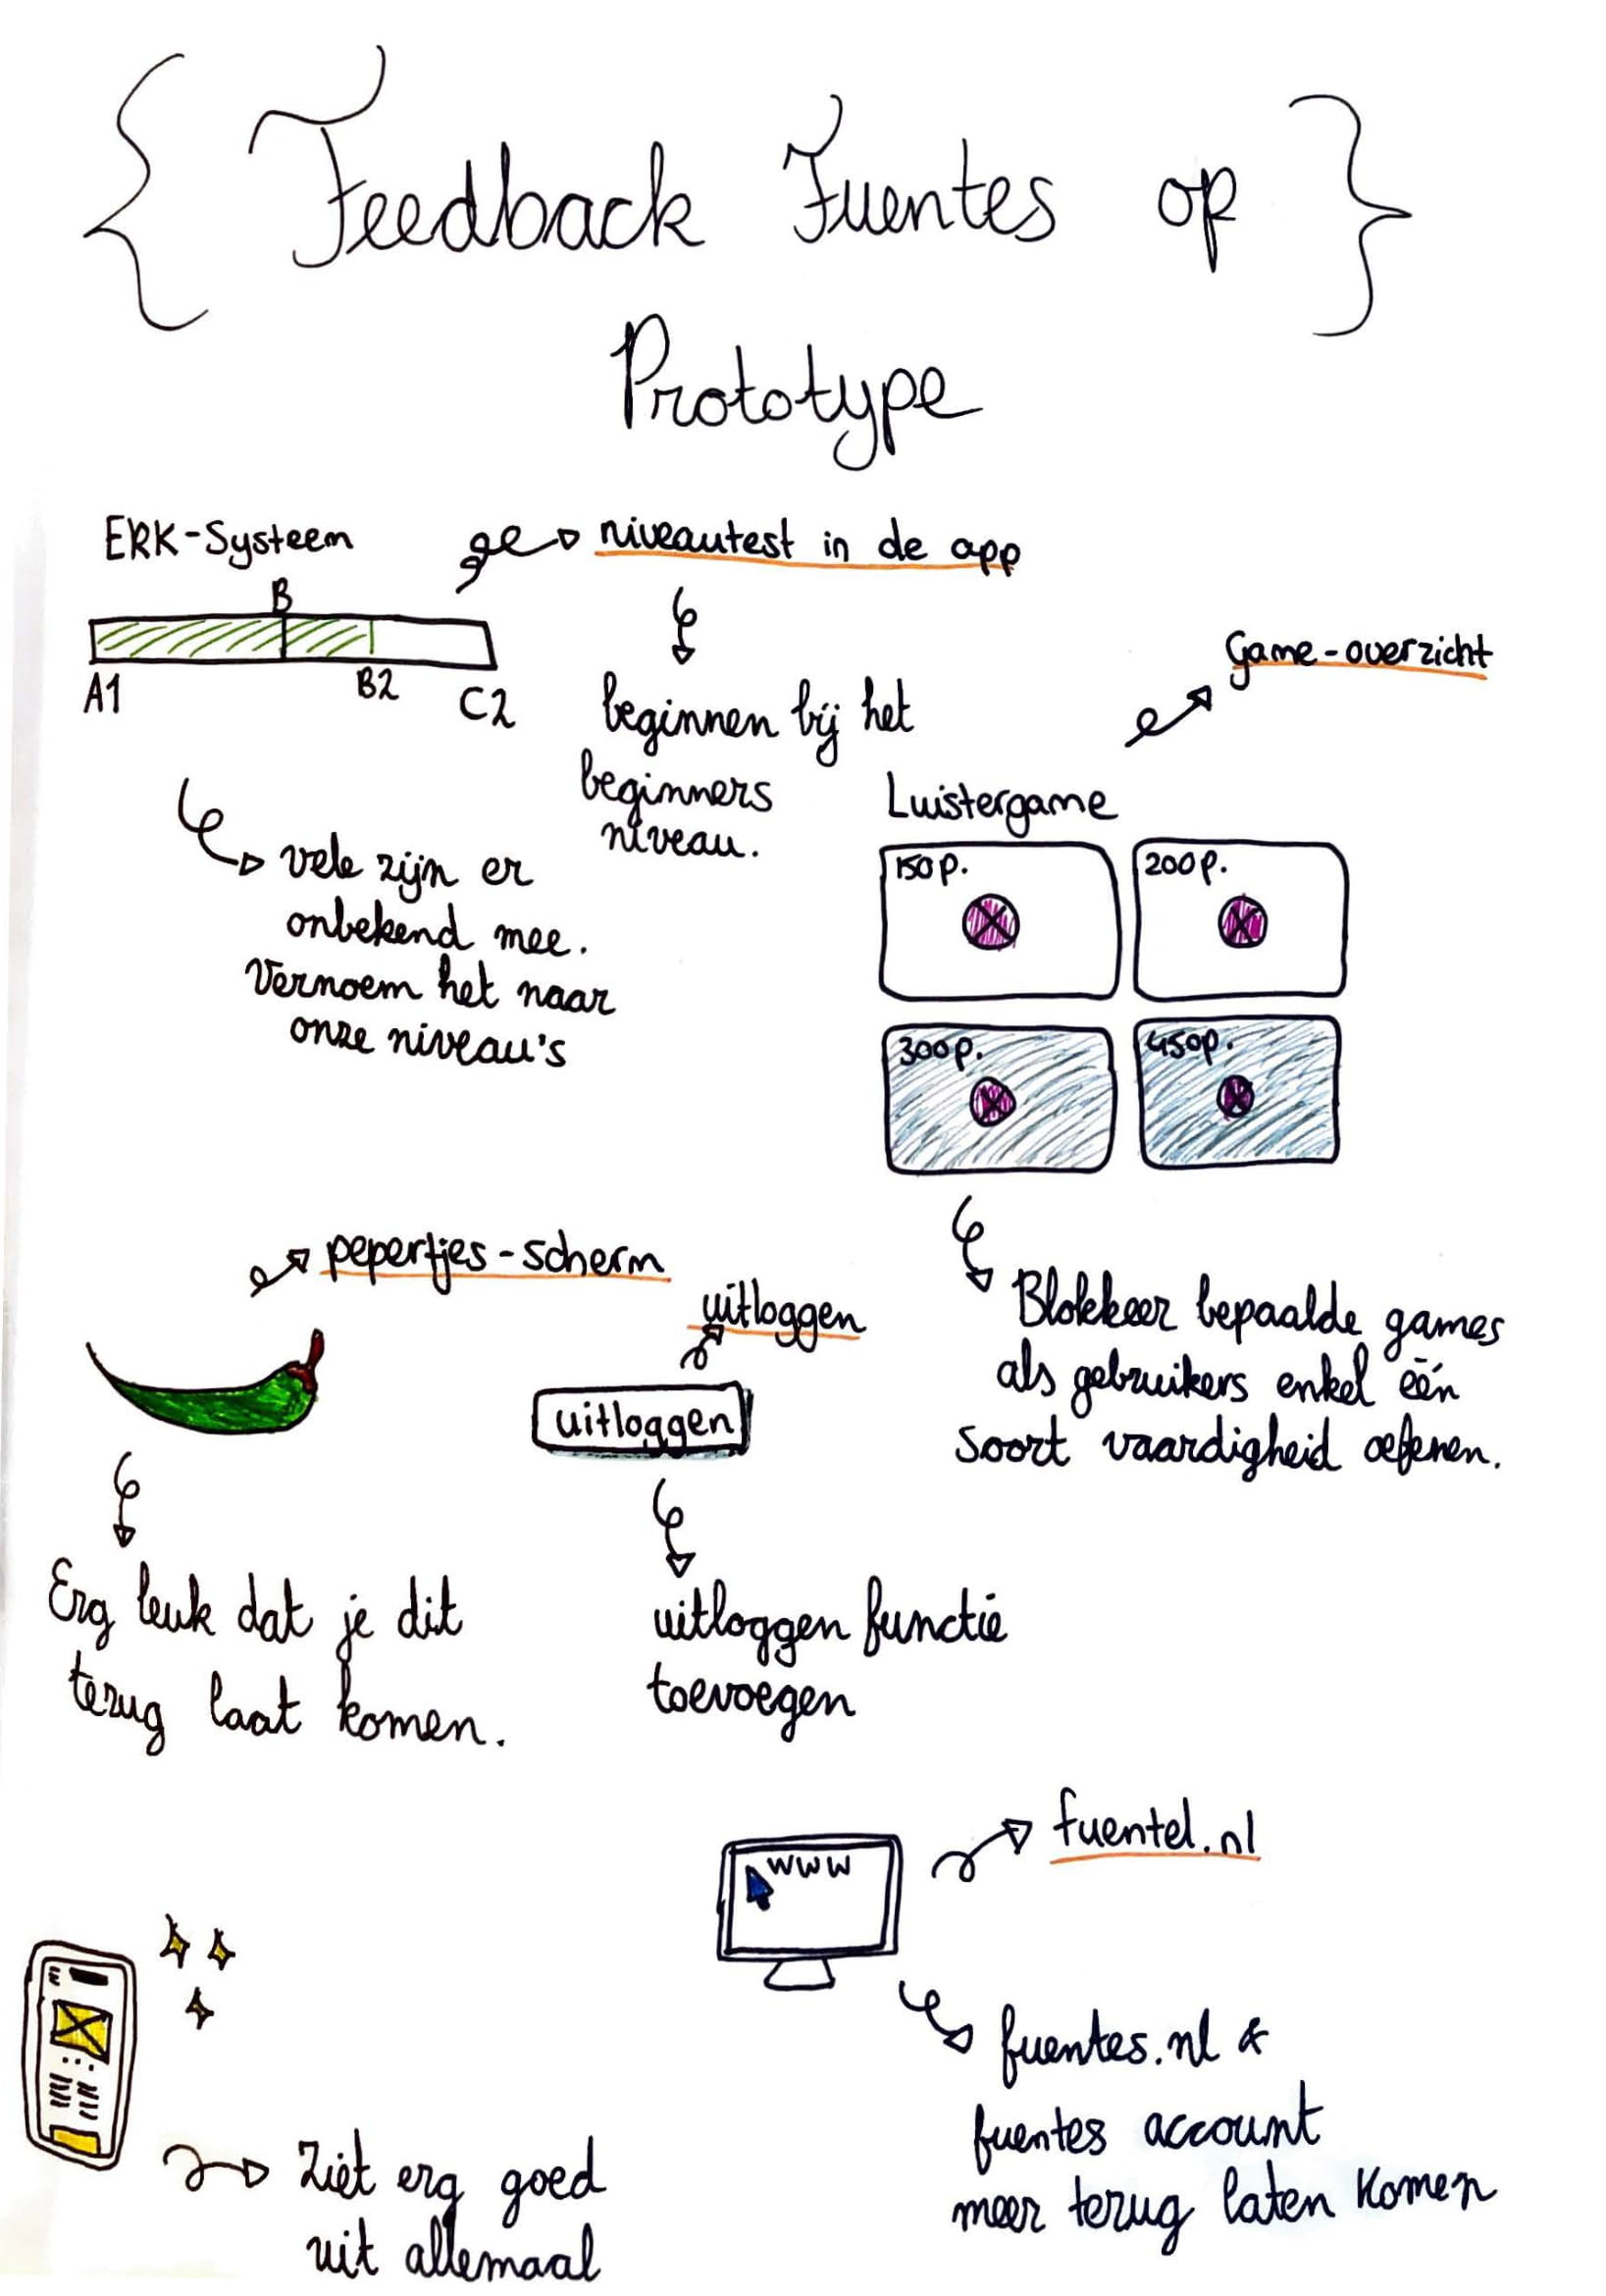 Feedback Fuentes op
Prototype
ERK-Systeem
B
A1
B2
C2
niveautest in de app
beginnen bij het
beginners
niveau.
vele zijn er
onbekend mee.
Vernoem het naar
onze niveau's
Game-overzicht
Luistergame
150p.
200p.
300p.
450p.
Blokkeer bepaalde games
als gebruikers enkel één
soort vaardigheid oefenen.
pepertjes-scherm
Erg leuk dat je dit
terug laat komen.
uitloggen
uitloggen
uitloggen functie
toevoegen
www
fuentel.nl
fuentes.nl &
fuentes account
meer terug laten komen
Ziet erg goed
uit allemaal